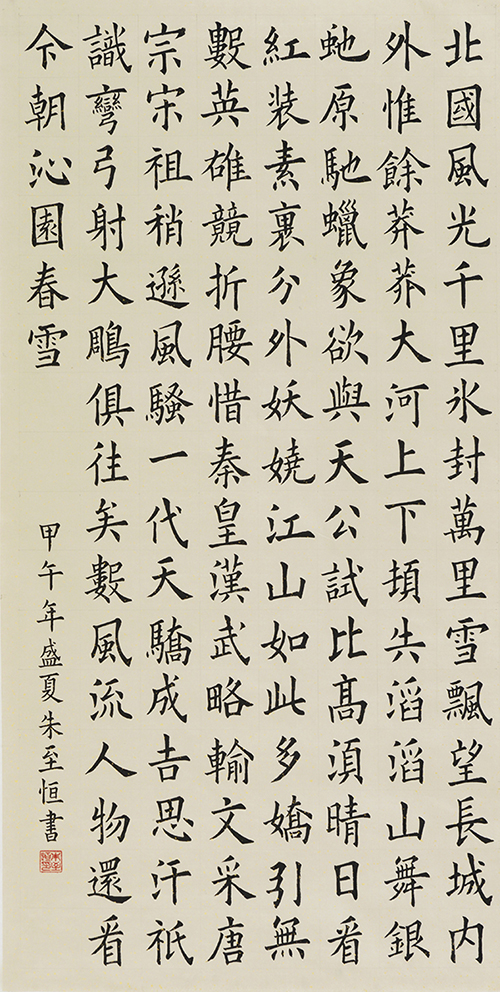 北國風光千里氷封萬里雪飄望長城内
外惟餘莽莽大河上下頓失滔滔山舞銀
虵原馳蠟象欲與天公試比髙須晴日看
紅装素裏分外妖嬈江山如此多嬌引無
數英雄競折腰惜秦皇漢武略輸文采唐
宗宋祖稍遜風騷一代天驕成吉思汗祇
識彎弓射大鵰俱往矣數風流人物還看
今朝沁園春雪
甲午年盛夏朱至恒書